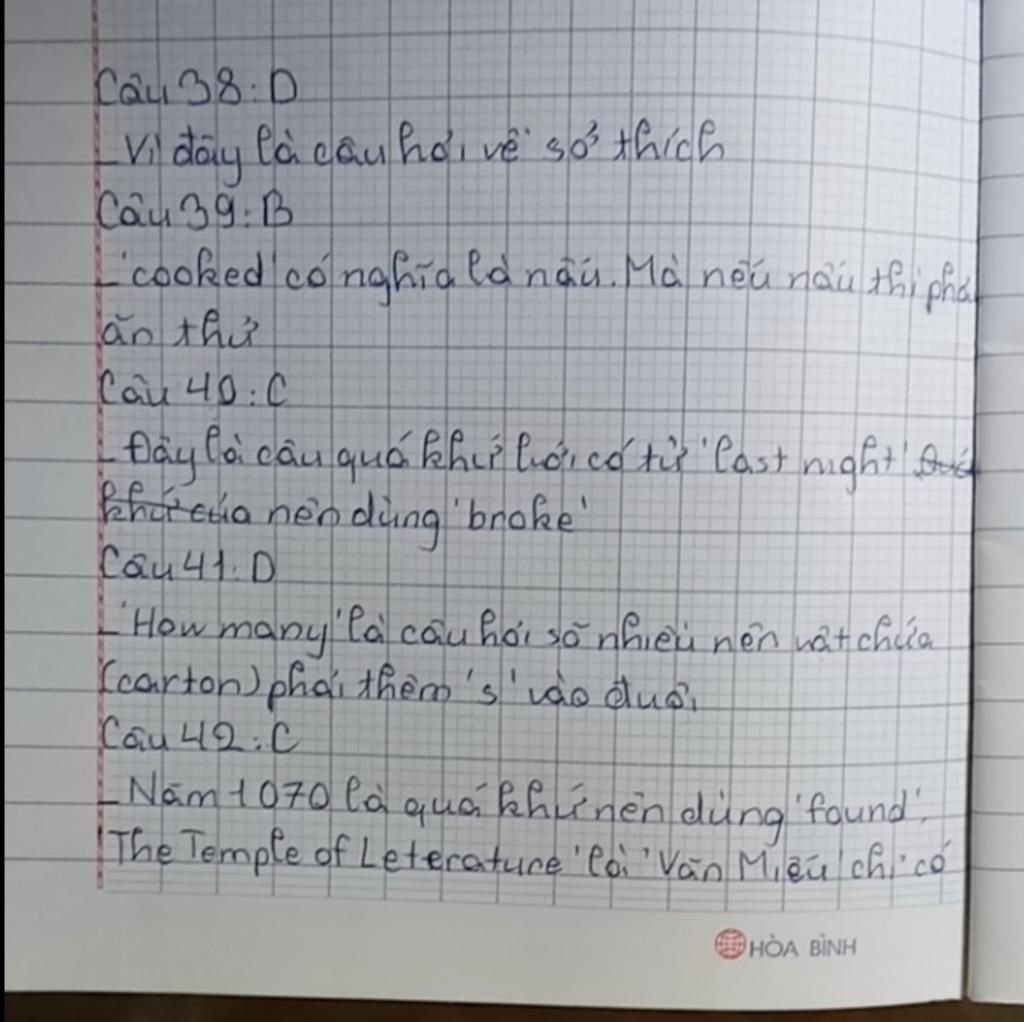 Câu 38: D
- Vì đây là câu hỏi về sở thích
Câu 39: B
- 'cooked' có nghĩa là nấu. Mà nếu nấu thì phả
ăn thử
Câu 40: C
- Đây là câu quá khứ bởi có từ 'last night'
nên dùng 'broke'
Câu 41: D
- 'How many' là câu hỏi số nhiều nên vật chứa
(carton) phải thêm 's' vào đuôi
Câu 42: C
- Năm 1070 là quá khứ nên dùng 'found'.
'The Temple of Leterature' là 'Văn Miếu' chỉ có
HÒA BÌNH